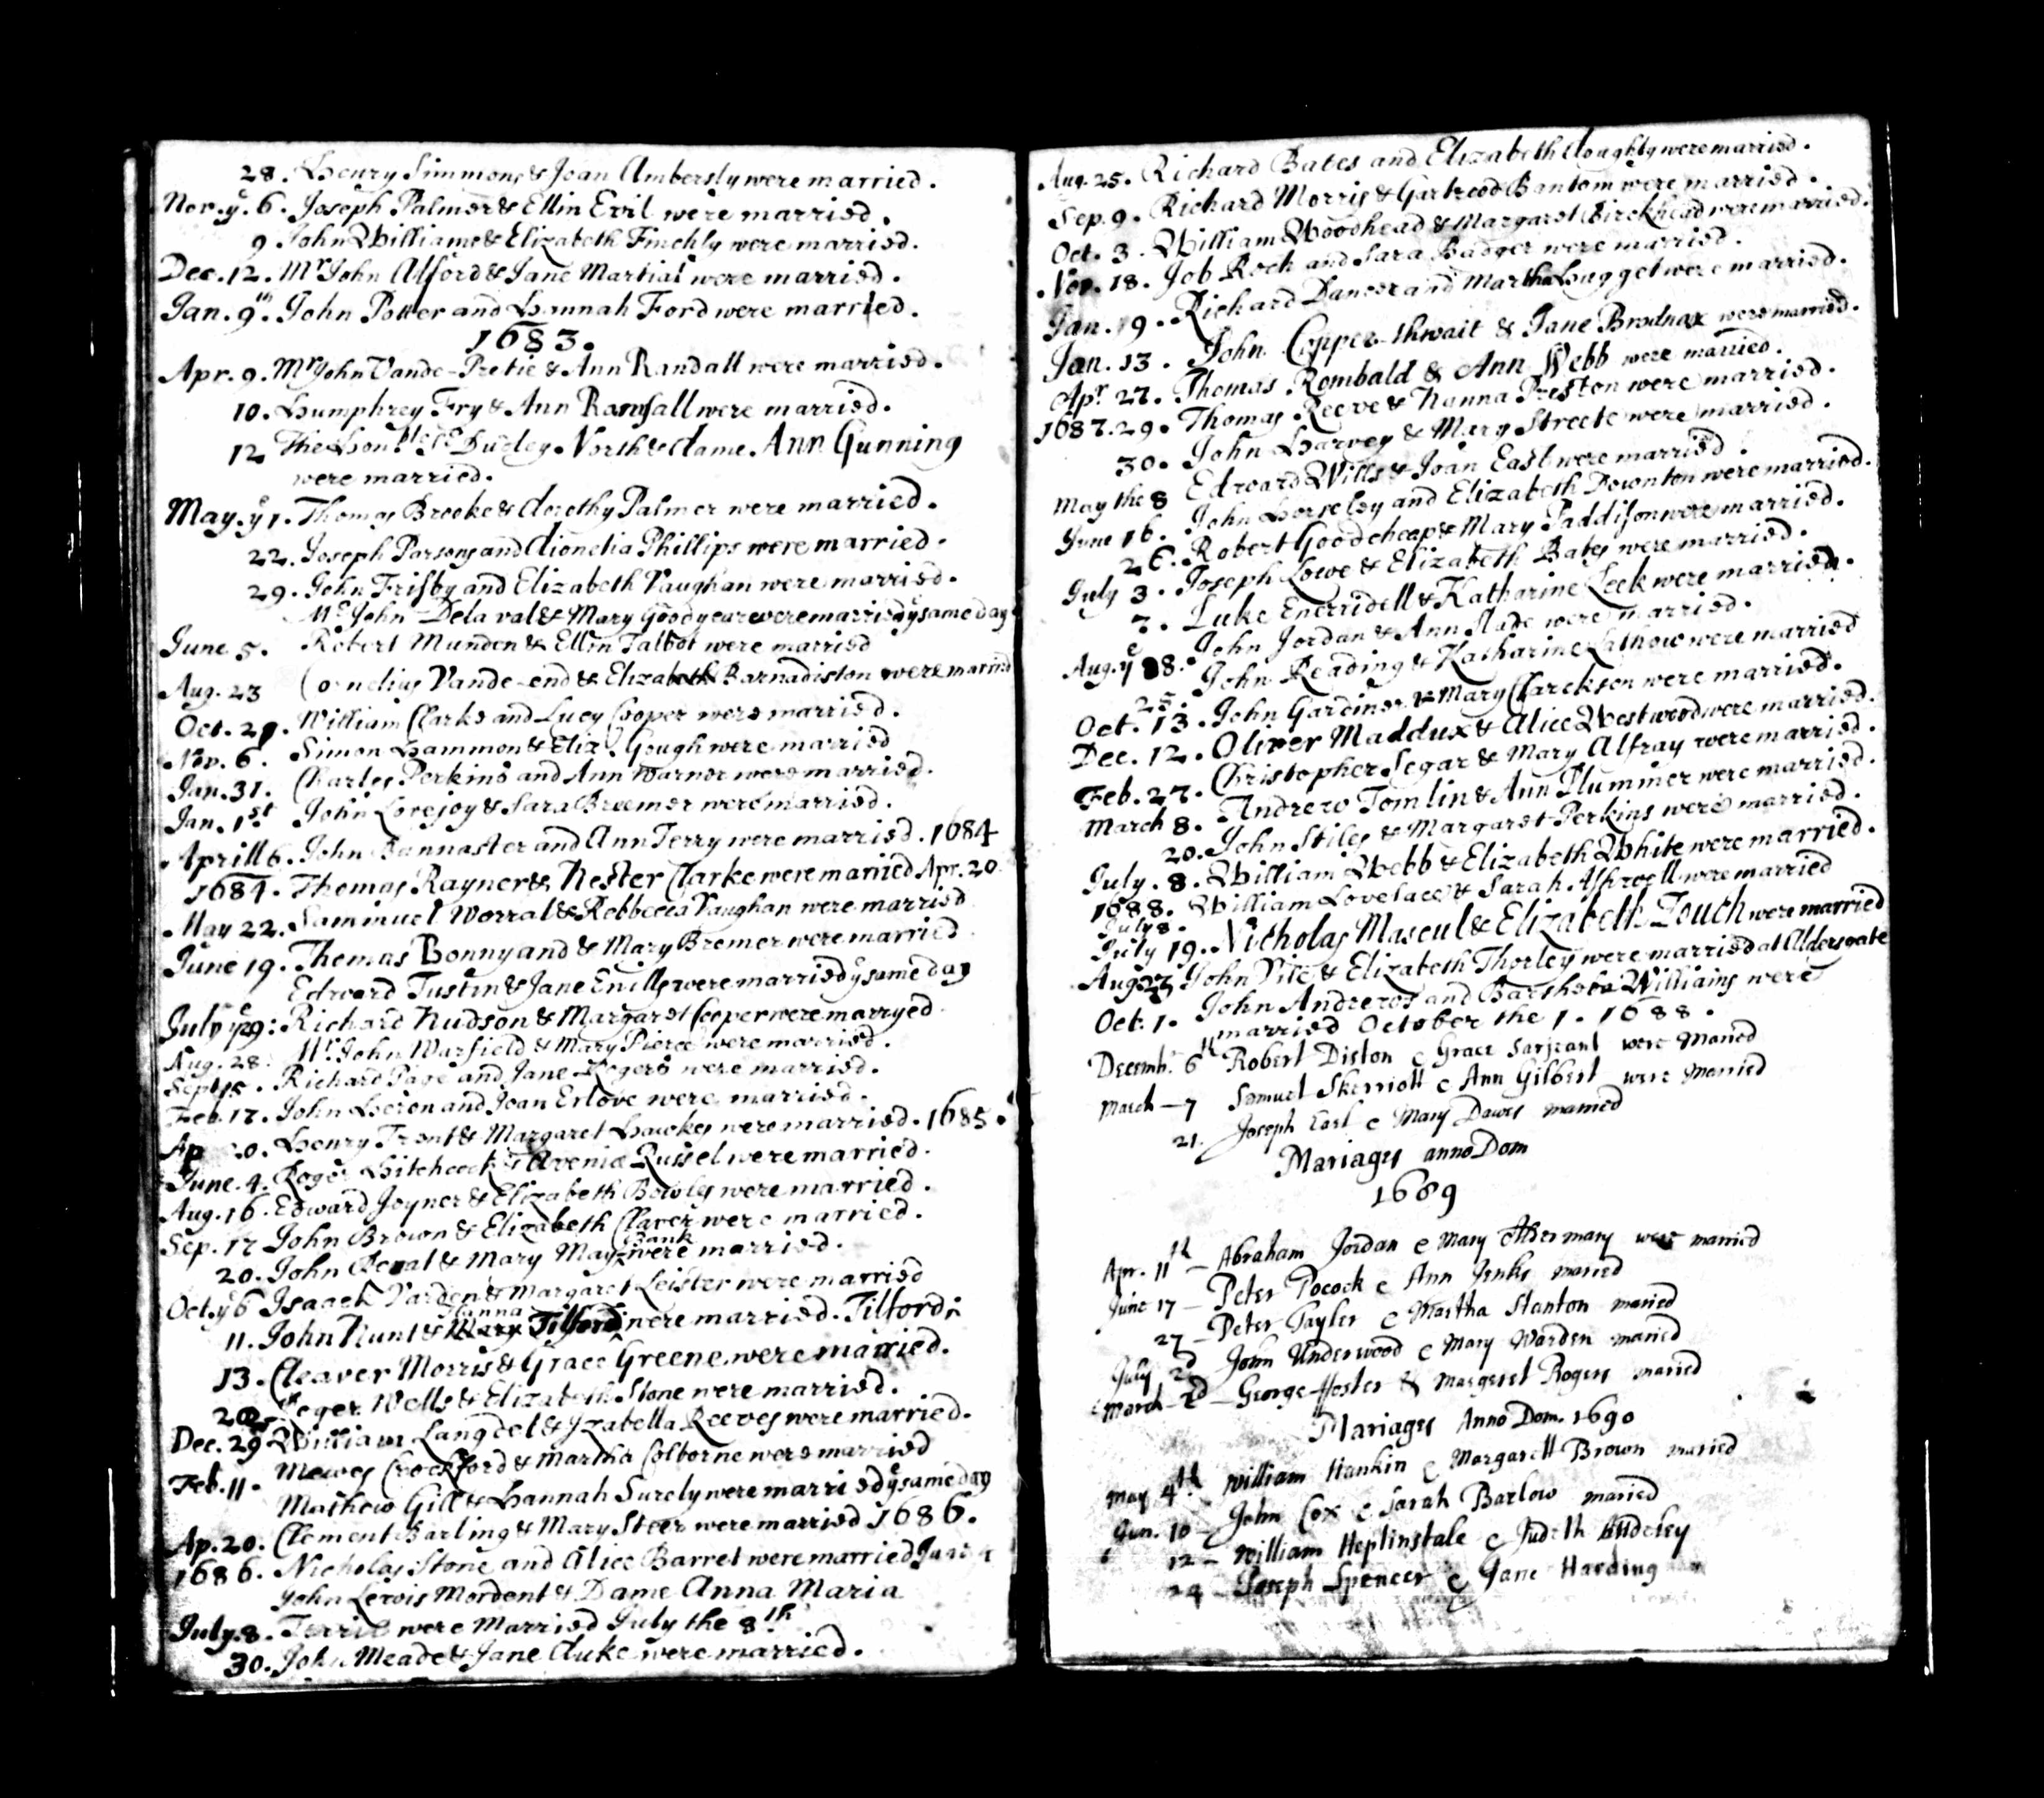 28. Henry Simmons & Joan Ambersly were married.
Nov. ye. 6. Joseph Palmer & Ellin Evil were married.
9 John Williams & Elizabeth Finchly were married.
Dec. 12. Mr John Alford & Jane Martial were married.
Jan. 9th. John Potter and Hannah Ford were married.
1683.
Apr. 9. Mr John Vande-Pretie & Ann Randall were married.
10. Humphrey Fry & Ann Ramsall were married.
12 The Honble Sr Dudley North & dame Ann Gunning
were married.
May. ye 1. Thomas Brooke & dorothy Palmer were married.
22. Joseph Parsons and dionelia Phillips were married.
29. John Frisby and Elizabeth Vaughan were married.
Mr John Delaval & Mary Goodyear were married ye same day
June 5. Robert Munden & Ellin Talbot were married
Aug. 23 Cornelius Vande-end & Elizabeth Barnadiston were married
Oct. 29. William Clarke and Lucy Cooper were married.
Nov. 6. Simon Hammon & Eliz. Gough were married
Jan. 31. Charles Perkins and Ann Warner were married.
Jan. 1st John Lovejoy & Sara Breemer were married.
Aprill 6. John Bannaster and Ann Terry were married. 1684
1684. Thomas Rayner & Hester Clarke were married Apr. 20
May 22. Sammuel Worral & Rebbecca Vaughan were married
June 19. Thomas Bonnyand & Mary Bremer were married
Edward Tustin & Jane Enills were married ye same day
July ye 29: Richard Hudson & Margaret Cooper were marryed.
Aug. 28. Mr John Warfield & Mary Pierce were married.
Sept 15. Richard Page and Jane Rogers were married.
Feb. 17. John Heron and Joan Erlove were married.
Ap 20. Henry Front & Margaret Hawkes were married. 1685.
June. 4. Roger Hitchcock & Avenia Russel were married.
Aug. 16. Edward Joyner & Elizabeth Bowles were married.
Sep. 17 John Brown & Elizabeth Claver were married.
20. John Reval & Mary May Bank were married.
Oct. ye 6 Isaack Varden & Margaret Leister were married
11. John Hunt & Hanna Tilford were married. Tilford:
13. Cleaver Morris & Grace Greene were married.
Roger Wells & Elizabeth Stone were married.
Dec. 29 William Langdel & Izabella Reeves were married.
Mewes Crockford & Martha Colborne were married
Feb. 11. Mathew Gill & Hannah Surely were married ye same day
Ap. 20. Clement Barling & Mary Steer were married 1686.
1686. Nicholas Stone and Alice Barret were married
John Lewis Mordent & Dame Anna Maria
July. 8. were Married July the 8th
30. John Meade & Jane duke were married.
Aug. 25. Richard Bates and Elizabeth doughty were married.
Sep. 9. Richard Morris & Gartrood Bantom were married.
Oct. 3. William Woodhead & Margaret Birckhead were married.
Nov. 18. Job Roch and Sara Badger were married.
Jan. 19. Richard Dancer and Martha Hugget were married.
Jan. 13. John Copper-thwait & Jane Brodnax were married.
Apr. 27. Thomas Rombald & Ann Webb were married.
1687. 29. Thomas Reeve & Hanna Preston were married.
30. John Harvey & Mary Streete were married.
May the 8 Edward Wills & Joan East were married.
June 16. John Horseley and Elizabeth Downton were married.
26. Robert Goodcheap & Mary Paddison were married.
July 3. Joseph Lowe & Elizabeth Bates were married.
7. Luke Enerridell & Katharine Leek were married.
Aug. ye 28. John Jordan & Ann Slade were married.
25. John Reading & Katharine Lathow were married
Oct. 13. John Gardiner & Mary Clarckson were married.
Dec. 12. Oliver Maddux & Alice Westwood were married.
Feb. 27. Christopher Segar & Mary Alfray were married.
March 8. Andrew Tomlin & Ann Plummer were married.
20. John Stiles & Margaret Perkins were married.
July. 8. William Webb & Elizabeth White were married.
1688. William Lovelace & Sarah Ashwell were married
July 8.
July 19. Nicholas Mascul & Elizabeth Touch were married
Aug. 23 John Vile & Elizabeth Thorley were married at Aldersgate
Oct. 1. John Andrews and Barsheba Williams were
married October the 1. 1688.
Decemb. 6th Robert Diston e Grace Sarjeant were Maried
March — 7 Samuel Skerriott e Ann Gilbert were Married
21. Joseph Earl e Mary Dawes married
Mariages anno Dom
1689
Apr. 11th — Abraham Jordan e Mary Aldermary were married
June 17 — Peter Pocock e Ann Jenks maried
27 — Peter Tayler e Martha Stanton maried
July 2d John Underwood e Mary Warden maried
March — 2d — George Foster & Margeret Rogers married
Mariages Anno Dom. 1690
May 4th William Hankin e Margarett Brown maried
Jun. 10 — John Cox e Sarah Barlow maried
12 — William Heptinstale e Judeth Audeley
24 — Joseph Spencer e Jane Harding